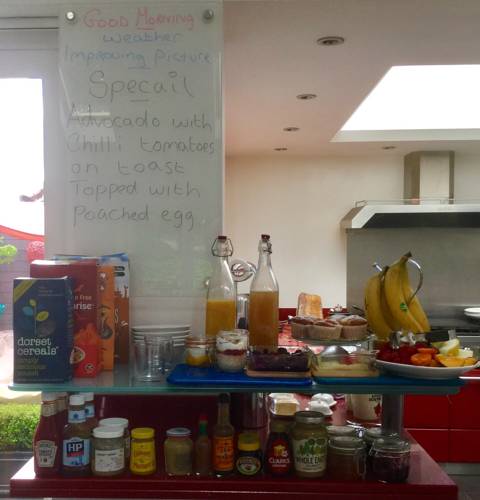 Good Morning
Weather
Improving Picture
Specail
Avocado with
Chilli tomatoes
on toast
Topped with
Poached egg
dorset
cereals
HP
CLARKS
WHOLE